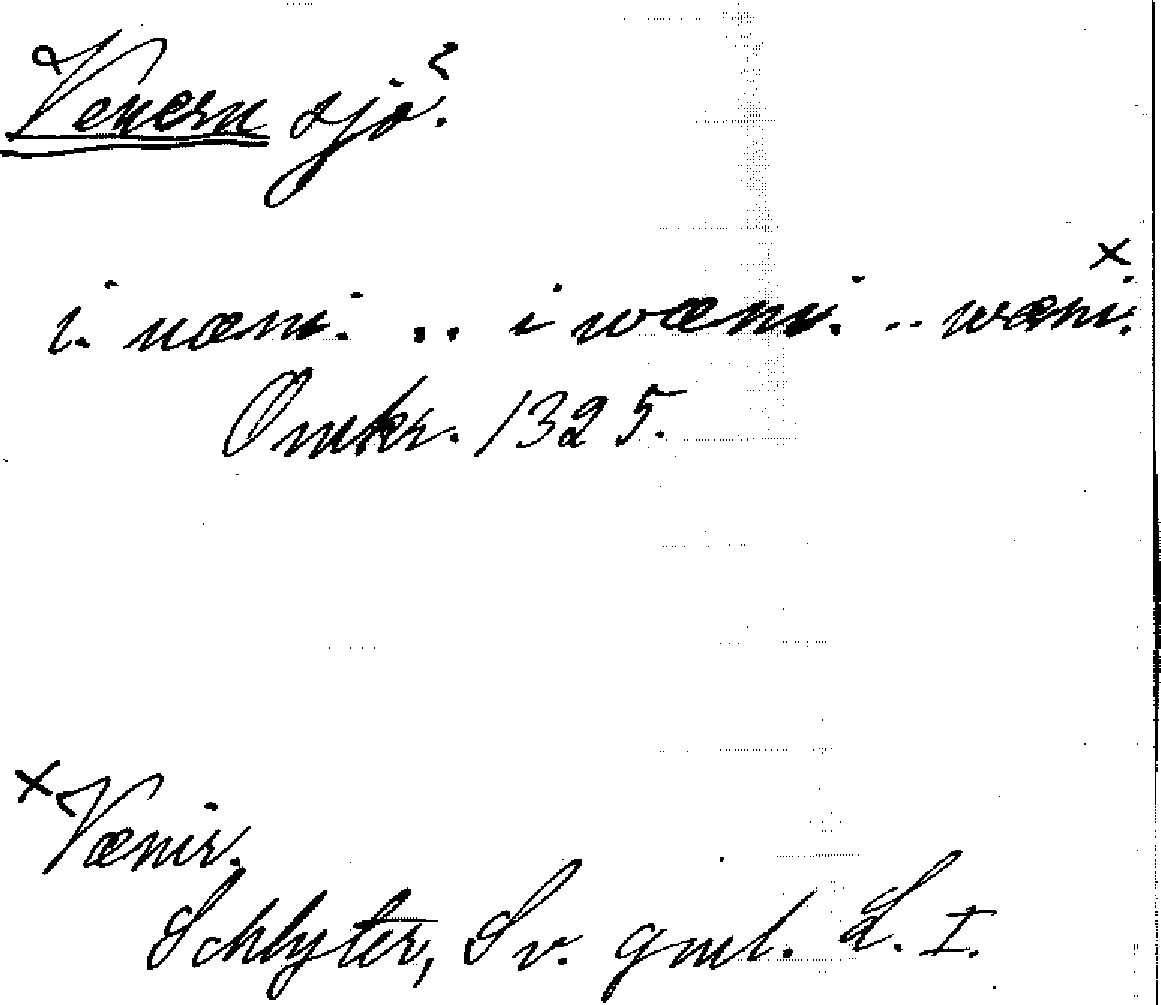 Venern sjö.
i. uæni. .. i wæni. .. wæni. x
Omkr. 1325.
x Vænir.
Schlyter, Sv. gml. L. I.